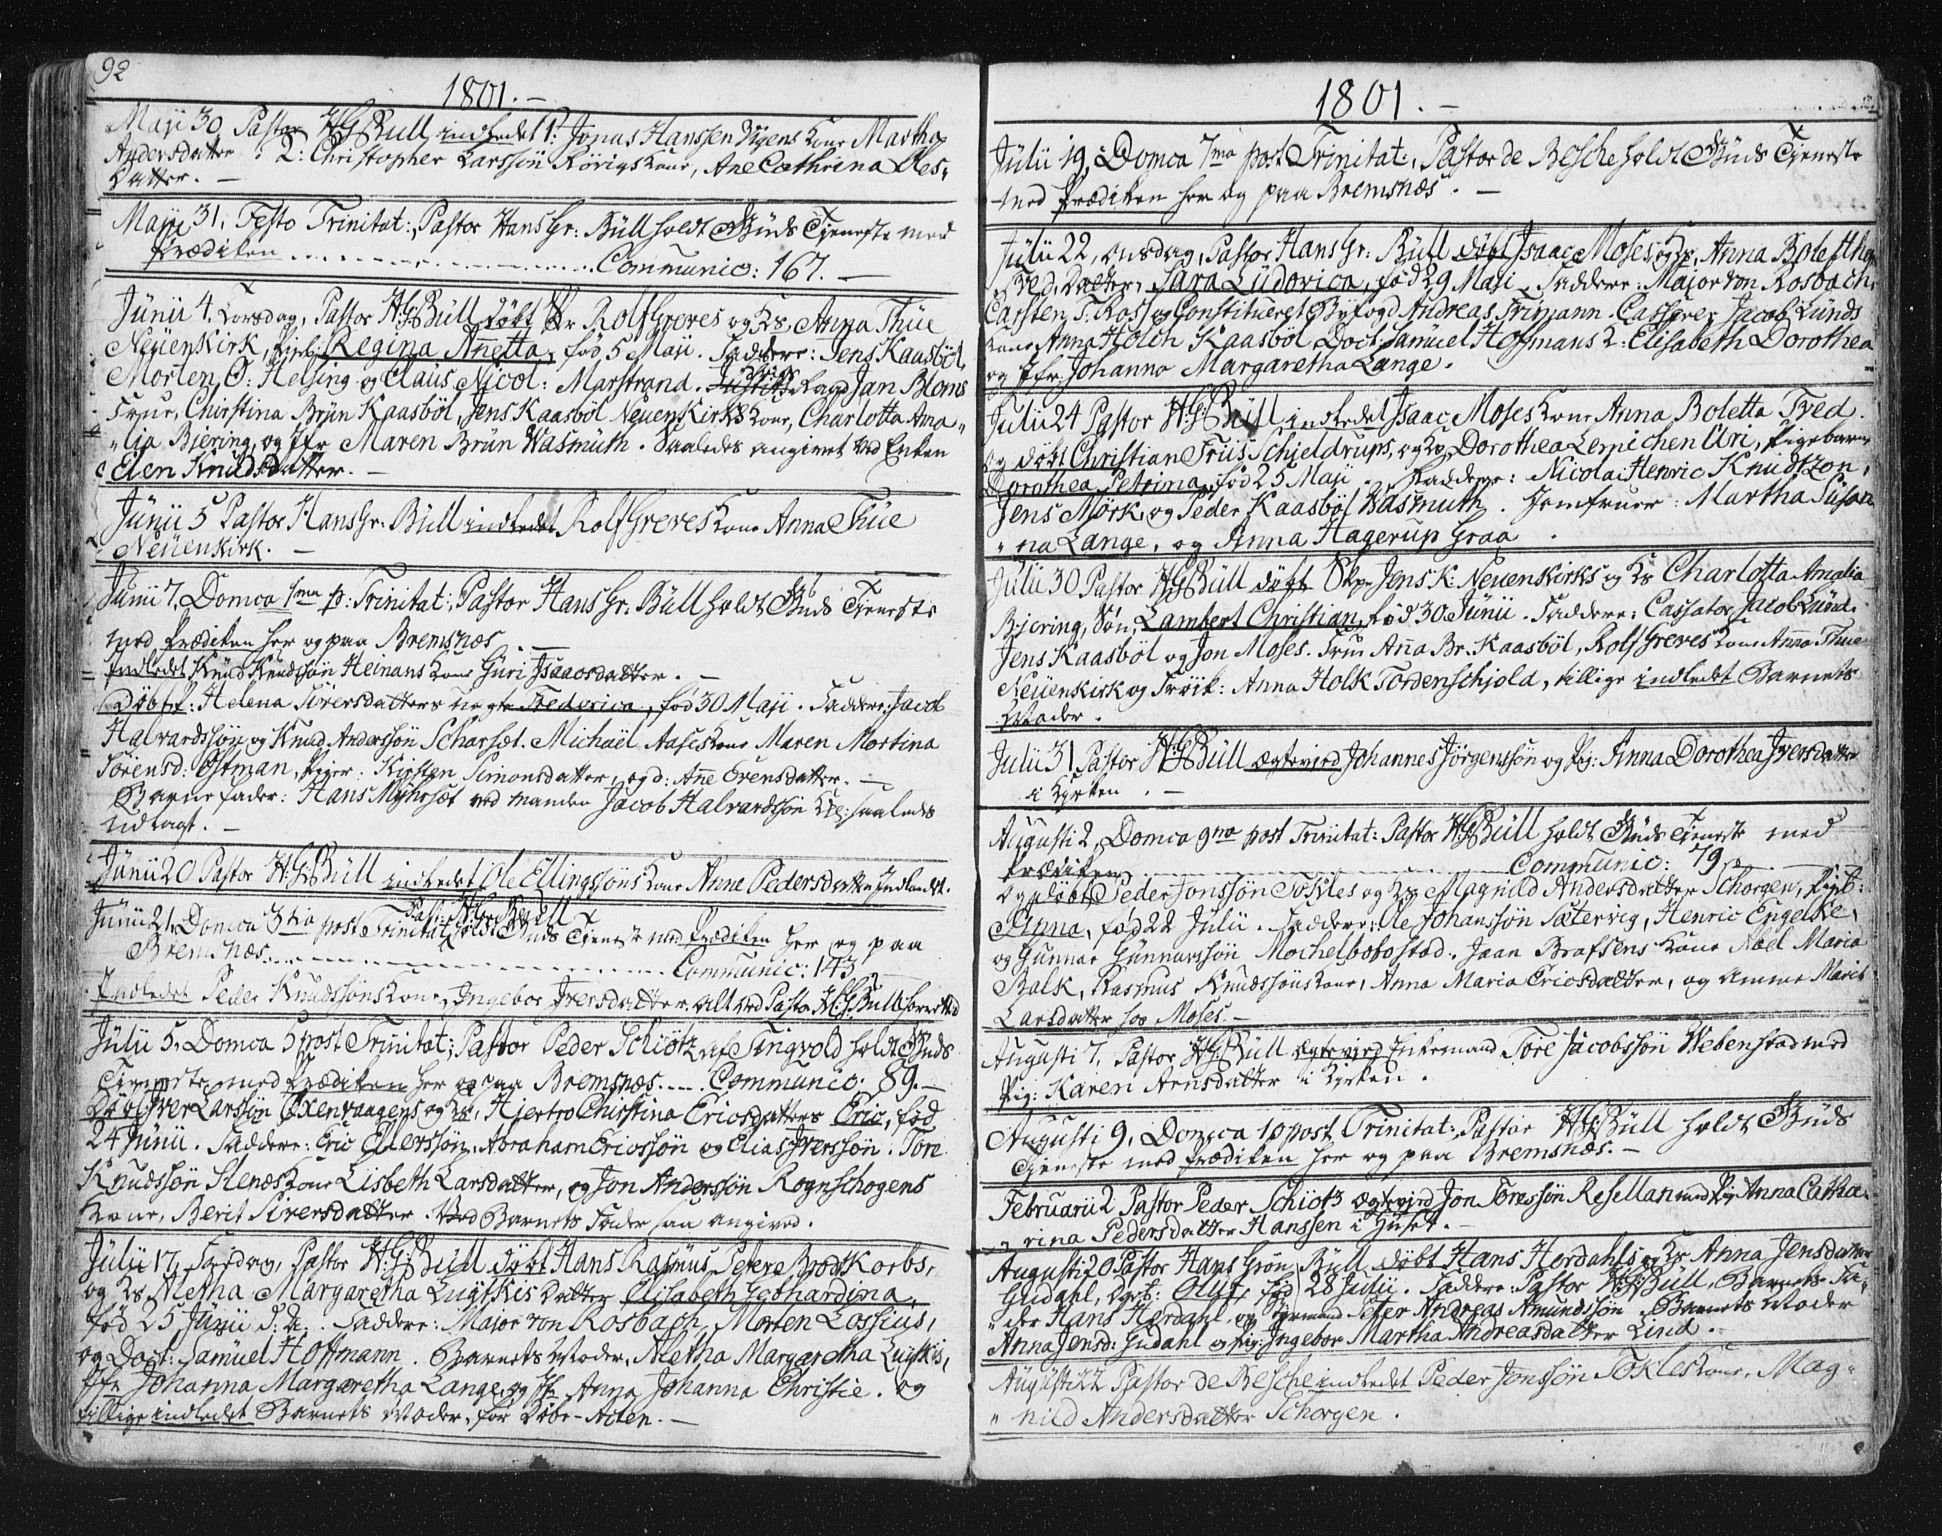 92
1801.
Maji 30 Pastor HG Büll indledet 1: Jonas Hanssen Kone Martha
Andersdatter. 2: Christopher Larssøn Kone, Ane Cathrina Oles-
datter.
Maji 31. Festo Trinitat: Pastor Hans Gr: Büll holdt Guds Tjeneste med
Prædiken ... Communic: 167.
Junii 4. Torsdag, Pastor H:G: Büll døbt Hr Rolf Greves og Hs, Anna Thüe
Neüenkirk, Pigb: Regina Anetta, fød 5 Maji. Faddere: Jens Kaasbøl,
Morten O: Helsing og Claus Nicol: Marstrand. Jan Bloms
Frue, Christina Brün Kaasbøl, Jens Kaasbøl Neüenkirks Kone, Charlotta Ama-
lia Bjering, og Jfr Maren Brün Wasmuth. Saaledes angivet ved Enken
Elen Knudsdatter.
Junii 5 Pastor Hans Gr: Büll indledet Rolf Greves Kone Anna Thüe
Neüenkirk.
Junii 7. Domca 1ma p: Trinitat: Pastor Hans Gr. Büll holdt Guds Tjeneste
med Prædiken her og paa Bremsnæs.
Indledet Knud Knudssøn Heinans Kone Guri Isaacsdatter.
Døbt: Helena Siversdatters uægte Frederica, fød 30 Maji. Faddere: Jacob
Halvardssøn og Knud Anderssøn Scharsæt. Michaël Aases Kone Maren Martina
Sørensd: Østman, Piger: Kirsten Simonsdatter, og d: Ane Erensdatter.
Barnefader: Hans Myhrsæt ved Manden Jacob Halvardssøn saaledes
udlagt.
Junii 20 Pastor H:G: Büll indledet Ole Ellingssøns Kone Anne Pedersdatter Indlandet.
Past: H:Gr: Büll
Junii 21. Domca 3tia post Trinitat: holdt Guds Tjeneste med Prædiken her og paa
Bremsnæs. ... Communic: 143
Indledet Peder Knudssøns Kone, Ingebor Iversdatter. alt ved Pastor H:G: Büll forrettet
Julii 5. Domca 5 post Trinitat: Pastor Peder Schiøtz af Tingvold holdt Guds
Tjeneste med Prædiken her og paa Bremsnæs. ... Communic: 89.
Døbt Iver Larssøn Oxenvaagens og Hs, Hjertro Christina Ericsdatters Eric, fød
24 Junii. Faddere: Eric Ellerssøn, Abraham Ericssøn og Elias Iverssøn. Tore
Knudssøn Stenæs Kone Lisbeth Larsdatter, og Jon Anderssøn Rognschogens
Kone, Berit Siversdatter. Ved Barnets Fader saa angived.
Julii 17. Fredag, Pastor H:G: Büll døbt Hans Rasmus Peter Brodtkorbs,
og Hs Aletha Margaretha Luytkis Datter Elisabeth Gebhardina,
fød 25 Junii d: A. Faddere: Major von Rosbach, Morten Lossius,
og Doct: Samuel Hoffmann. Barnets Moder, Aletha Margaretha Luytkis,
Jfr Johanna Margaretha Lange, og Jfr Anna Johanna Christie. og
tillige indledet Barnets Moder, før Døbe-Acten.
1801.
Julii 19. Domca 7ma post Trinitat: Pastor de Besche holdt Guds Tjeneste
med Prædiken her og paa Bremsnæs.
Julii 22, Onsdag, Pastor Hans Gr: Büll døbt Isaac Moses og Hs, Anna Bolettha
Tved, Datter, Sara Ludovica, fød 29 Maji. Faddere: Major von Rosbach,
Carsten T: Ross og Constitueret Byfogd Andreas Trimann. Casserer Jacob Lunds
Kone Anna Holch Kaasbøl, Doct: Samuel Hoffmans K: Elisabeth Dorothea
og Jfr: Johanna Margaretha Lange.
Julii 24 Pastor H:G: Büll indledet Isaac Moses Kone Anna Boletta Tved.
og døbt Christian Friis Schjeldrups, og Hs Dorothea Lemichen Uri, Pigebarn
Dorothea Petrina, fød 25 Maji. Faddere: Nicolai Henric Knudtzon,
Jens Mørk, og Peder Kaasbøl Wasmuth. Jomfruer: Martha Susan-
na Lange, og Anna Hagerup Graa.
Julii 30 Pastor H:G: Büll døbt Jens K: Neuenkirks og Hs Charlotta Amalia
Bjering, Søn, Lambert Christian, fød 30 Junii. Faddere: Cassator Jacob Lund.
Jens Kaasbøl og Jon Moses. Frue Anna Br. Kaasbøl, Rolf Greves Kone Anna Thue
Neüenkirk og Frøik: Anna Holk Tordenschjold, tillige indledet Barnets
Moder.
Julii 31 Pastor H:G: Büll ægtevied Johannes Jørgenssøn og Pig: Anna Dorothea Iversdatter
i Kirken.
Augusti 2, Domca 9na post Trinitat: Pastor H:G: Büll holdt Guds Tjeneste med
Prædiken ... Communic: 79
Og døbt Peder Jonssøn Tokles og Hs Magnild Andersdatter Schorgen, Pigb:
Anna, fød 22 Julii. Faddere: Ole Johanssøn Sætervig, Henric Engelke,
og Gunnar Gunnarssøn Mochelbobostad. Jaan Brafsens Kone Abel Maria
Balk, Rasmus Knudssøns Kone, Anna Maria Ericsdatter, og Amme Marit
Larsdatter hos Moses.
Augusti 7. Pastor H:G: Büll ægteviед Enkemand Tore Jacobssøn Webenstad med
Pig: Karen Arnsdatter i Kirken.
Augusti 9. Domca 10 post Trinitat: Pastor H:G: Büll holdt Guds
Tjeneste med Prædiken her og paa Bremsnæs.
Februarii 2 Pastor Peder Schiøtz ægteviед Jon Toressøn Resellan med Pig Anna Catha-
rina Pedersdatter Hanssen i Huset.
Augusti 20 Pastor Hans Grøn Büll døbt Hans Herdahls og Hs Anna Jensdatter
Gudahl, Olle, fød 28 Julii. Faddere: Pastor H:G: Büll, Barnets Fa-
der Hans Herdahl, og Peter Andreas Amundssøn. Barnets Moder
Anna Jensd: Gudahl og Pig: Ingebor Martha Andreasdatter Lind.
Augusti 22 Pastor de Besche indledet Peder Jonssøn Tokles Kone, Mag-
nild Andersdatter Schorgen.